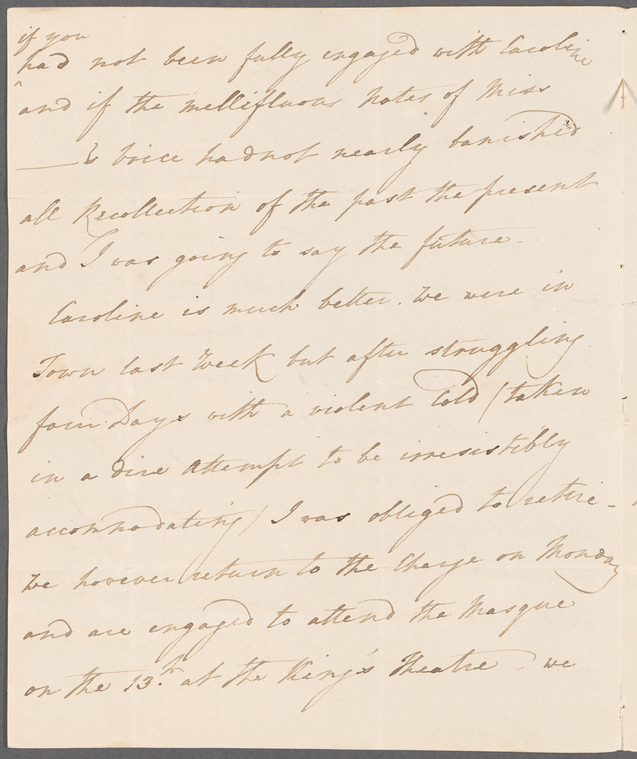 if you
had not been fully engaged with Caroline
and if the mellifluous Notes of Miss
——'s voice had not nearly banished
all Recollection of the past the present
and I was going to say the future.
Caroline is much better. We were in
Town last Week but after struggling
four Days with a violent Cold (taken
in a dire Attempt to be irresistibly
accommodating) I was obliged to retire -
We however return to the Charge on Monday
and are engaged to attend the Masque
on the 13th. at the King's Theatre we